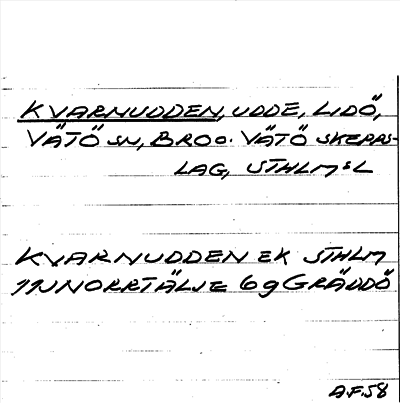 KVARNUDDEN, UDDE, LIDÖ,
VÄTÖ SN, BRO O. VÄTÖ SKEPPS-
LAG, STHLMS L
KVARNUDDEN EK STHLM
11J NORRTÄLJE 6g GRÄDDÖ
A.F. 58